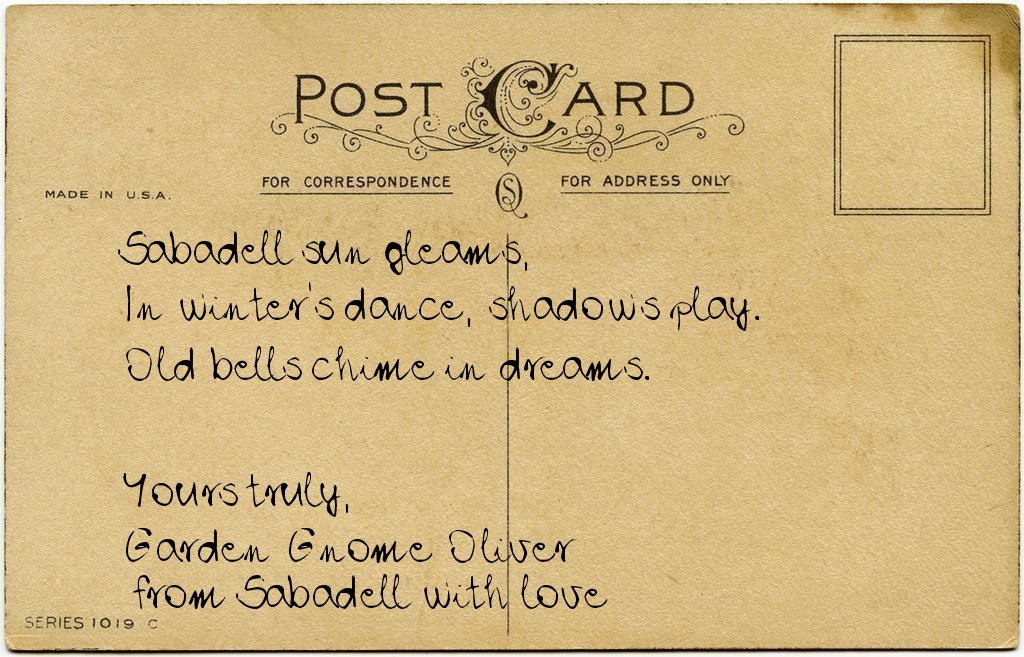 POST CARD
FOR CORRESPONDENCE
FOR ADDRESS ONLY
MADE IN U.S.A.
Sabadell sun gleams,
In winter's dance, shadows play.
Old bells chime in dreams.
Yours truly,
Garden Gnome Oliver
from Sabadell with love
SERIES 1019 C